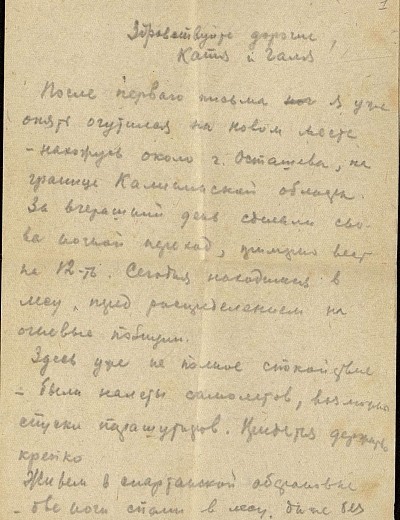 1
Здравствуйте дорогие,
Катя и Галя
После первого письма я уже
опять очутился на новом месте
- нахожусь около г. Осташева, на
границе Калининской области.
За вчерашний день сделали сно-
ва ночной переход, примерно вест
на 12-ть. Сегодня находимся в
лесу, перед распределением на
огневые позиции.
Здесь уже не полное спокойствие
- были налеты самолетов, возможны
спуски парашутистов. Придется держать
крепко
Живем в спартанской обстановке
- две ночи спали в лесу, даже без